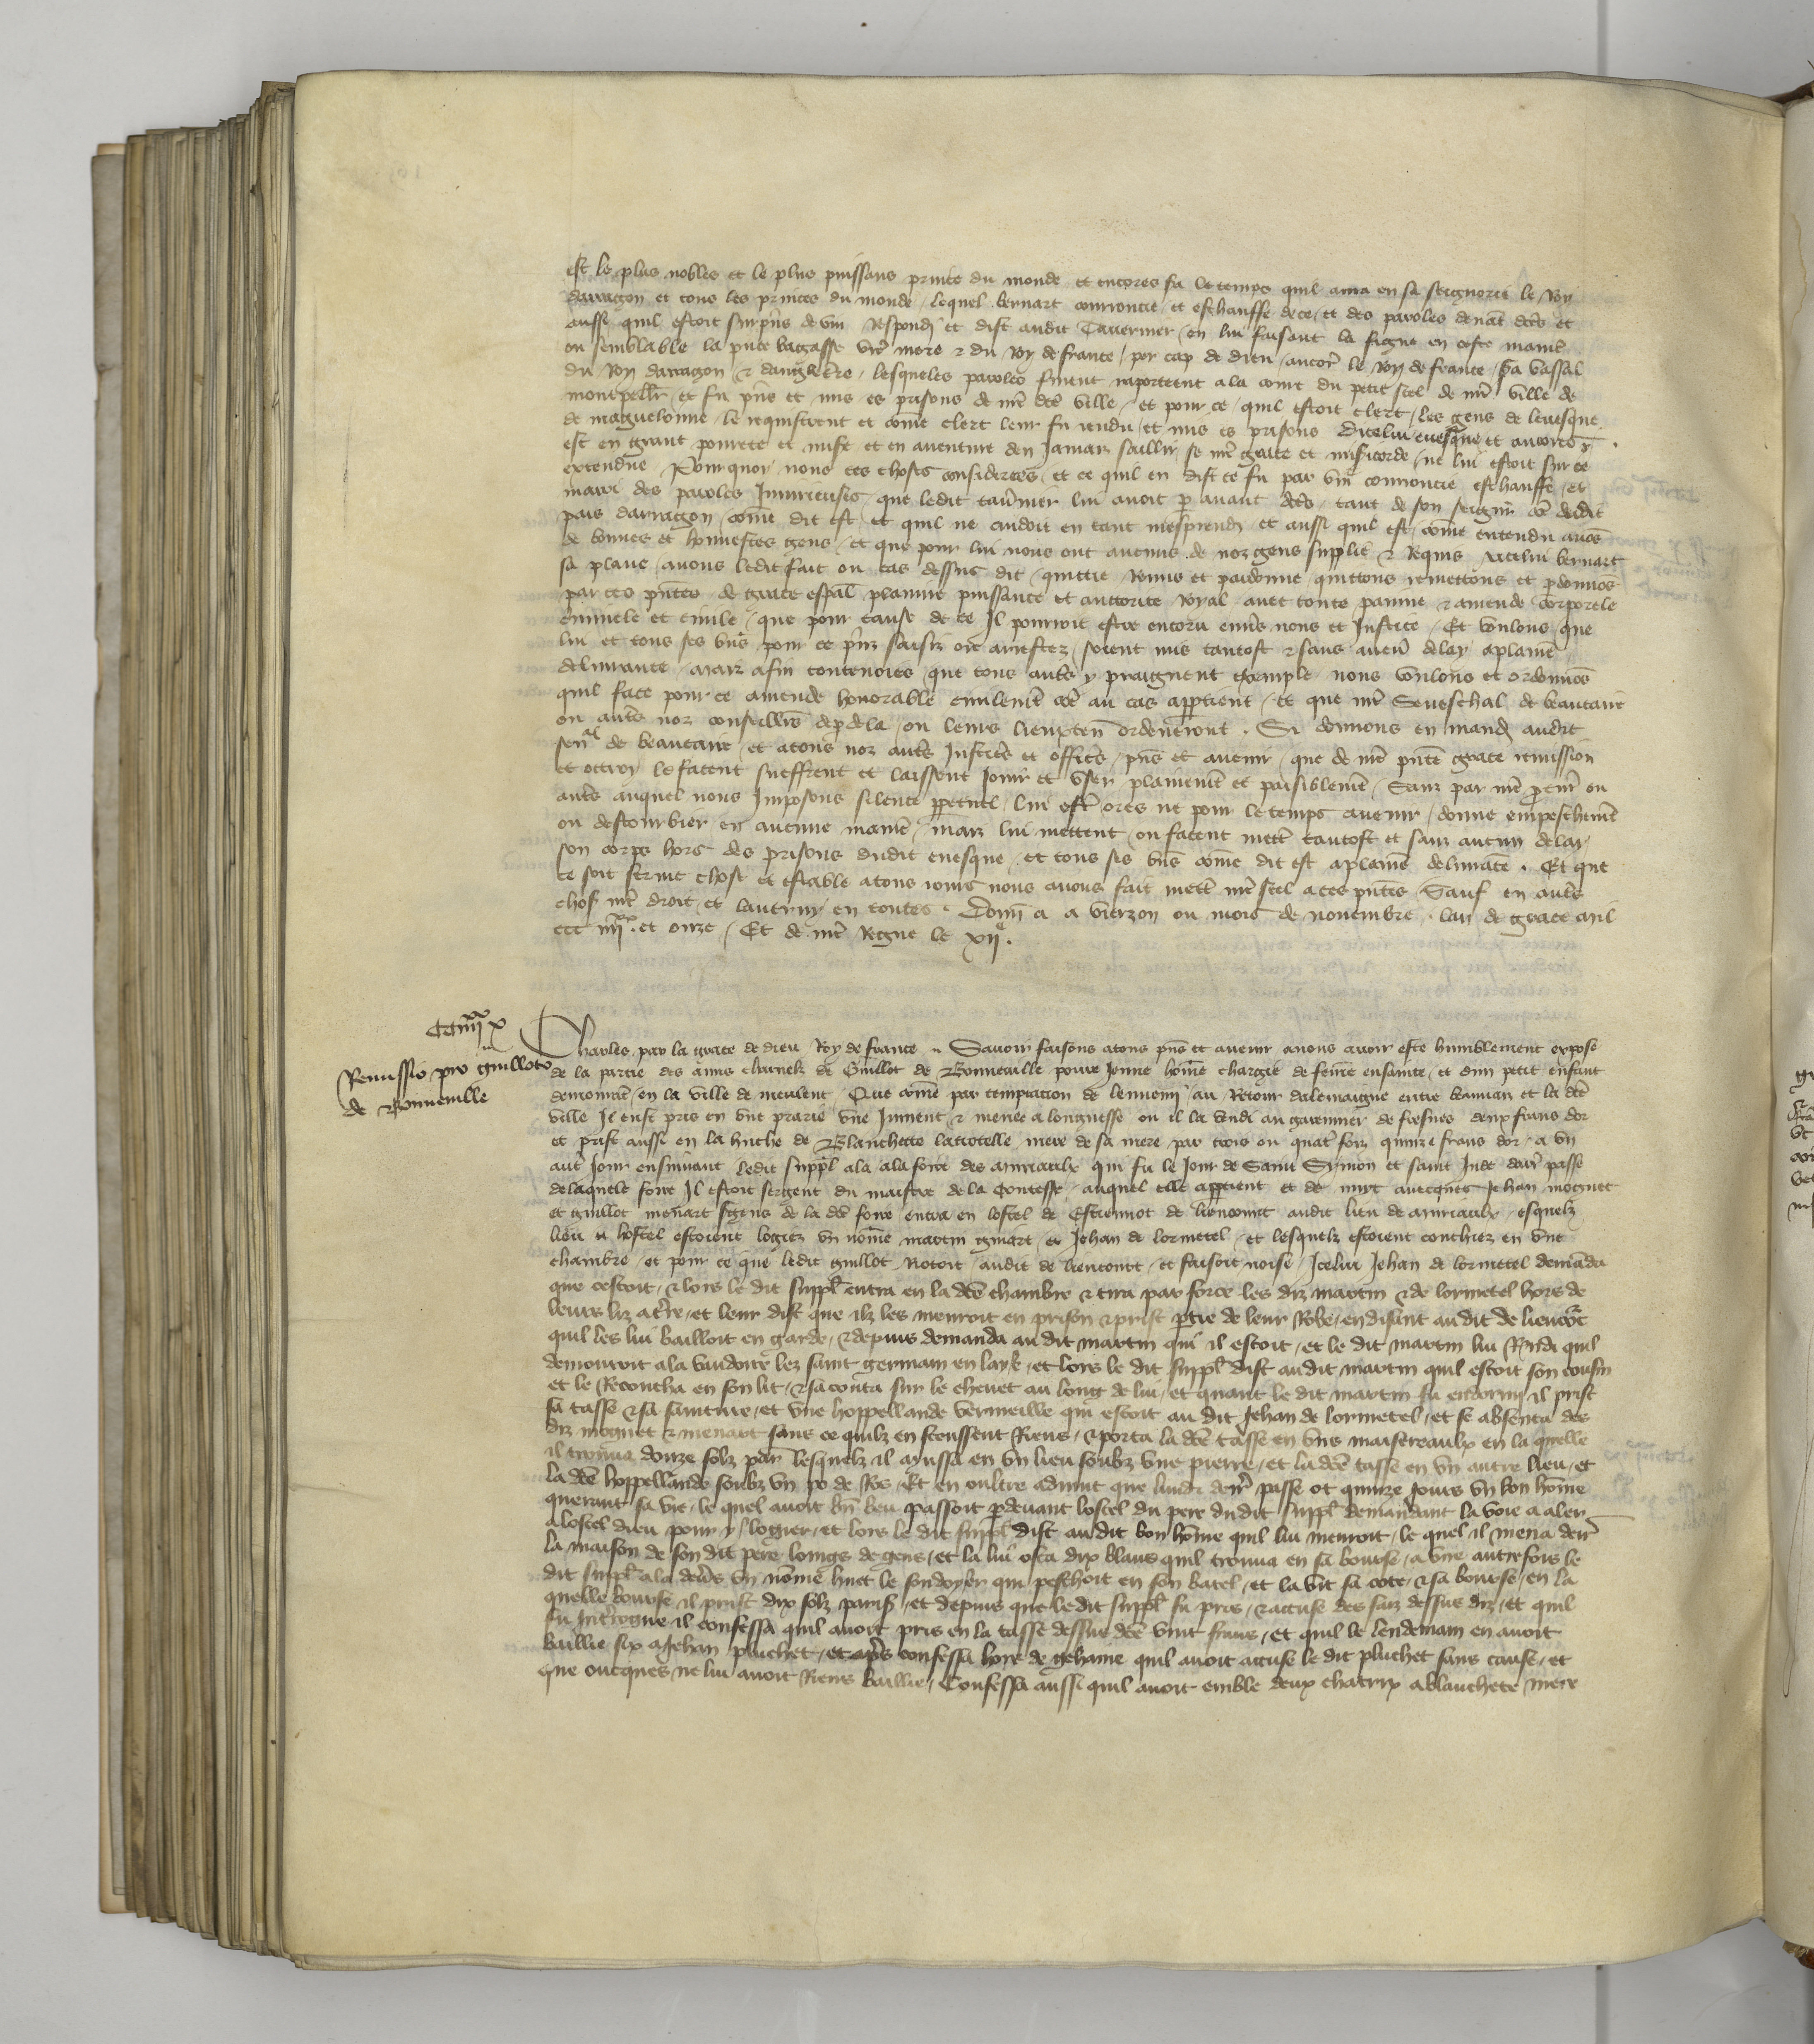 est le plus nobles et le plus puissans prince du monde et encores fu le temps quil ama en sa seignorie le Roy
darragon et tous les princes du monde lequel bernart courroucie et eschauffe de ce et des paroles devãt dc̃es et
aussi quil estoit surprĩs de vin respondi et dist audit Tavernier en lui faisant la figue en ceste manẽ
ou semblable la pute bagasse vr̃e mere et du Roy de france por cap de dieu le Roy de france vassal
du Roy darragon et dangleterre lesqueles paroles furent raportees a la court du petit scel de nr̃e ville de
montpellr̃ et fu prĩs et mis es prisons de nr̃e dc̃e ville et pour ce quil estoit clerc les gens de levesque
de maguelonne le requistrent et com̃e clerc leur fu rendu et mis es prisons dicelui evesque et encores y
est en grant povrete et misere et en aventure den jamaiz saillir se nr̃e grace et misericorde ne lui estoit sur ce
extendue Pourquoy nous ces choses considerees et ce quil en dist ce fu par vin courroucie eschauffe et
marri des paroles injurieuses que ledit tav̓nier lui avoit par avant dc̃es tant de son seignr̃ cõe dudit
pais darragon com̃e dit est et quil ne cuidoit en tant mesprendr̃ et aussi quil est com̃e entendu avõs
de bonnes et honnestes gens et que pour lui nous ont aucuns de noz gens supplie et requis icelui bernart
sa plane avons ledit fait ou cas dessus dit quittie remis et pardonne quittons remettons et pardonnõs
par ces pñtes de grace esp̃al plainne puissance et auctorite royal avec toute painne et amende corporele
criminele et civile que pour cause de ce Il pourroit estre encoru env̓s nous et Justice Et voulons que
lui et tous ses bñs pour ce prĩz saisiz ou arrestez soient mis tantost et sans aucũ delay a plainne
delivrance maiz afin toutevoies que tous aut̓s y praignent exemple nous voulons et ordennõs
quil face pour ce amende honorable civilemẽt cõe au cas appartient et que nr̃e Seneschal de beaucaire
ou aut̓s noz conseilliers de par dela ou leurs lieuxten̄ ordeneront Si donnons en mand̃ audit
sen̄al de beaucaire et a tous noz aut̓s Justiciers et officiers pñs et avenir que de nr̃e pñte grace remission
et ottroy le facent sueffrent et laissent Joir et user plainemẽt et paisiblemẽt Sanz par nr̃e procur̃ ou
aut̓s auquel nous Imposons silence perpetuel lui estre ores ne pour le temps avenir donne empeschemẽt
ou destourbier en aucune maniẽ maiz lui mettent ou facent mettr̃ tantost et sanz aucun delay
son corps hors des prisons dudit evesque et tous ses bñs com̃e dit est a plainne delivrãce Et que
ce soit ferme chose et estable a tous jours nous avons fait mettr̃ nr̃e scel a ces pñtes Sauf en aut̓s
choses nr̃e droit et lautruy en toutes Donñ a vierzon ou mois de novembre lan de grace mil
ccc iiijxx et onze Et de nr̃e Regne le xije
CCiiijxx x
Remissio pro guilloto
de Bonneville
Charles par la grace de dieu Roy de france Savoir faisons a tous pñs et avenir a nous avoir este humblement expose
de la partie des amis charnelz de Guillot de Bonneville povre jeune hom̃e chargie de fem̃e ensainte et dun petit enfant
demourãt en la ville de meulent Que com̃e par temptacion de lennemi au retour dalemaigne entre et la dc̃e
ville Il eust pris en une prarie une Jument et menee a longuesse ou il la vendi au garennier de fresnes deux frans dor
et prist aussi en la huche de Blanchette mere de sa mere par trois ou quatr̃ foiz quinze frans dor a un
autr̃ Jour ensuivant ledit suppl̃ ala a la foire des qui fu le Jour de Saint Symon et saint Jude derr̃ passe
de laquele foire Il estoit sergent du maistre de la Contesse auquel elle appartient et de nuyt avecques Jehan moquet
et guillot menart sergens de la dc̃e foire entra en lostel de Estiennot de liencourt audit lieu de esquelz
lieu et hostel estoient logiez un nõme martin et Jehan de lormetel et lesquelz estoient couchiez en une
chambre et pour ce que ledit guillot audit de liencourt et faisoit noise Icelui Jehan de lormetel demãda
que cestoit et lors le dit suppl̃ entra en la dc̃e chambre et tira par force les diz martin et de lormetel hors de
leurs liz a t̓re et leur dist que ilz les menroit en prison et prist partie de leur robe en disant au dit de liencõt
quil les lui bailloit en garde et depuis demanda au dit martin qui il estoit et le dit martin lui rendi quil
demouroit a la lez saint germain en laye et lors le dit suppl̃ dist au dit martin quil estoit son cousin
et le recoucha en son lit et sacouta sur le chevet au long de lui et quant le dit martin fu endormi il prist
sa tasse et sa sainture et une hoppellande vermeille qui estoit au dit Jehan de lormetel et se absenta des
diz moquet et menart sans ce quilz en sceussent riens et porta la dc̃e tasse en uns en la quelle
il trouva douze solz par̃ lesquelz il mussa en un lieu soubz une pierre et la dc̃e tasse en un autre lieu et
la dc̃e hoppellande soubz un po de Et en oultre advint que lundi derr̃ passe ot quinze jours un bon hom̃e
querant sa vie le quel avoit bñ beu passoit par devant lostel du pere du dit suppl̃ demandant la voie a aler
a lostel dieu pour y logier et lors le dit suppl̃ dist au dit bon hõme quil lui menroit le quel il mena derr̃
la maison de son dit pere loings de gens et la lui osta dix blans quil trouva en sa bourse a une autrefois le
dit suppl̃ ala dev̓s un nõme huet le qui peschoit en son batel et la vit sa cote et sa bourse en la
quelle bourse il prist dix solz parisis et depuis que ledit suppl̃ fu pris et accuse des faiz dessus diz et quil
fu interrogue il confessa quil avoit pris en la tasse dessus dc̃e vint frans et quil le lendemain en avoit
baillie six a Jehan pluchet et apr̃s confessa hors de gehaine quil avoit accuse le dit pluchet sans cause et
que oncques ne lui avoit riens baillie Confessa aussi quil avoit emble deux a blanchete mere